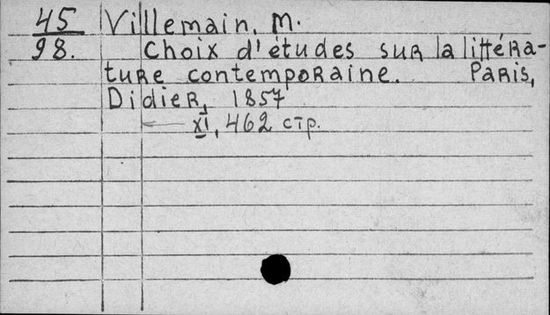 45 Villemain, M.
98. Choix d'études sur la littéra-
ture contemporaine. Paris,
Didier, 1857
XI, 462 стр.